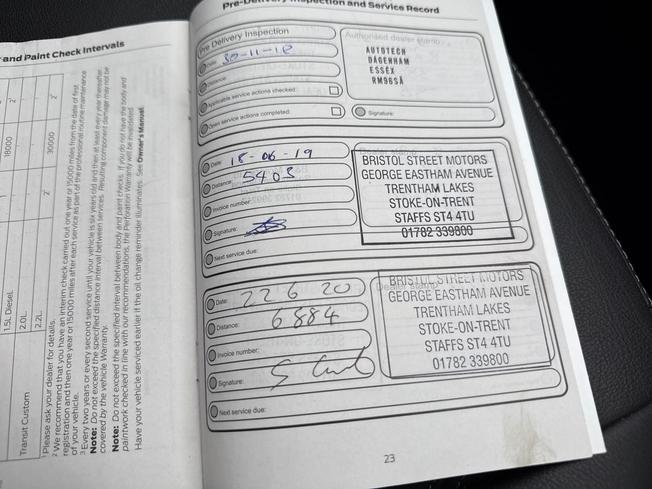 and Paint Check Intervals
18000
2
30000
2
2
1.5L Diesel
2.0L
2.2L
Transit Custom
Please ask your dealer for details.
We recommend that you have an interim check carried out one year or 15000 miles from the date of first
registration and then one year or 15000 miles after each service as part of the professional routine maintenance
of your vehicle.
Every two years or every second service until your vehicle is six years old and then at least every year thereafter.
Note: Do not exceed the specified distance interval between services. Resulting component damage may not be
covered by the vehicle Warranty.
Note: Do not exceed the specified interval between body and paint checks. If you do not have the body and
paintwork checked in line with our recommendations, the Perforation Warranty will be invalidated.
Have your vehicle serviced earlier if the oil change reminder illuminates. See Owner's Manual.
Pre-Delivery Inspection and Service Record
Pre Delivery Inspection
Date: 30-11-18
Distance:
Applicable service actions checked:
Open service actions completed:
Authorised dealer stamp
AUTOTECH
DAGENHAM
ESSEX
RM96SA
Signature:
Date: 18-06-19
Distance: 5408
Invoice number:
Signature:
Next service due:
Dealer stamp
BRISTOL STREET MOTORS
GEORGE EASTHAM AVENUE
TRENTHAM LAKES
STOKE-ON-TRENT
STAFFS ST4 4TU
01782 339800
Date: 22 6 20
Distance: 6884
Invoice number:
Signature:
Next service due:
Dealer stamp
BRISTOL STREET MOTORS
GEORGE EASTHAM AVENUE
TRENTHAM LAKES
STOKE-ON-TRENT
STAFFS ST4 4TU
01782 339800
23